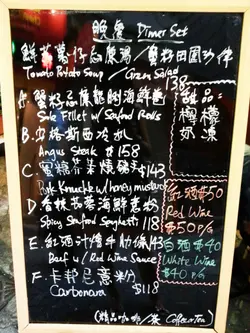 晚餐 Dinner Set
鮮茄薯仔忌廉湯/蟹籽田園沙律
Tomato Potato Soup / Green Salad
A. 蟹籽忌廉龍脷海鮮卷 138
Sole Fillet w/ Seafood Rolls
B. 安格斯西冷扒
Angus Steak $158
C. 蜜糖芥末燒豬手 $143
Pork Knuckle w/ honey mustard
D. 香辣茄蓉海鮮意粉
Spicy Seafood Spaghetti 118
E. 紅酒汁燴牛肋條 143
Beef w/ Red Wine Sauce
F. 卡邦尼意粉
Carbonara $118
甜品:
檸檬
奶凍
紅酒 $50
Red Wine
$50 P/G
白酒 $40
White Wine
$40 P/G
(精品咖啡/茶 Coffee or Tea)